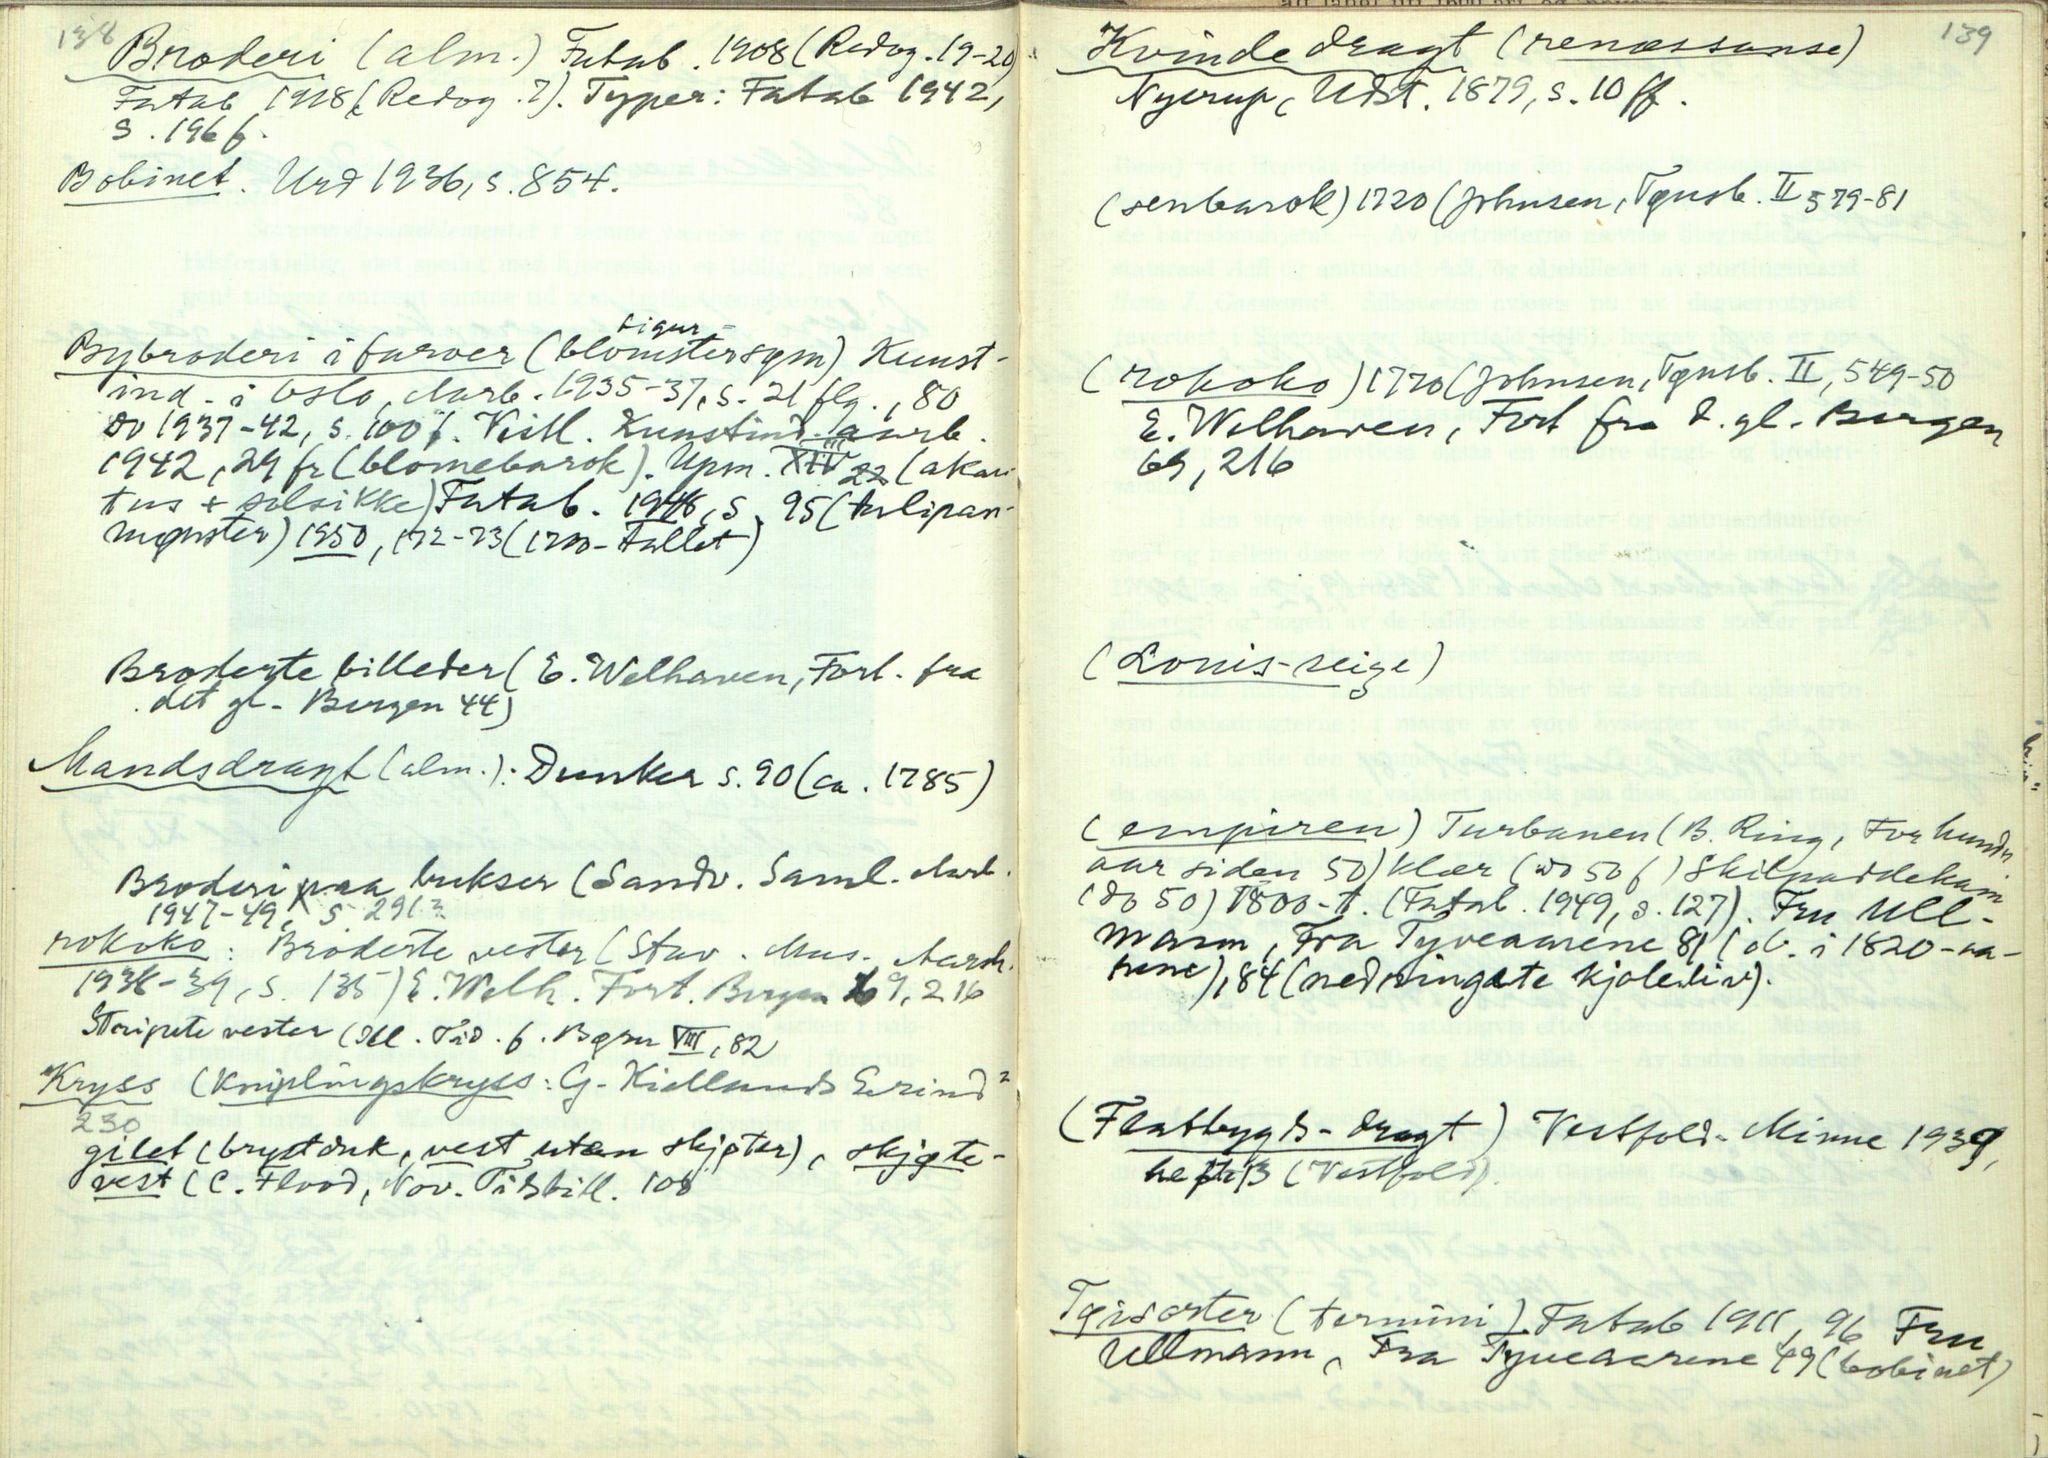 138
Broderi (alm.) Fatab. 1908 (Redog. 19-20)
Fatab 1918 (Redog. 7). Typer: Fatab 1942,
s. 196 f.
Bobinet. Urd 1936, s. 854.
Bybroderi i farver (blomstersøm) Kunst-
ind. i Oslo, Aarb. 1935-37, s. 21 flg., 80
Do 1937-42, s. 100 f. Vestl. Kunstind. aarb.
1942, 29 fr (blomebarok). Upm. 22 (akan-
tus + solsikke) Fatab. 1948, s. 95 (tulipan-
mønster) 1950, 172-73 (1700-tallet)
Broderte billeder (E. Welhaven, Fort. fra
det gl. Bergen 44)
Mandsdragt (alm.): Dunker s. 90 (ca. 1785)
Broderi paa bukser (Sandv. Saml. Aarb.
1947-49, s 291?
rokoko: Broderte vester (Stav. Mus. Aarsh.
1938-39, s. 135) E. Welh. Fort. Bergen 69, 216
Stripete vester (Ill. Tid. f. Børn VIII, 82
Kryss (Kniplingskryss: G. Kiellands Erind²
230
gilet (brystduk, vest uten skjøter), skjøte-
vest (C. Flood, Nov. Tidsbill. 108
139
Kvindedragt (renæssanse)
Nyerup, Udst. 1879, s. 10 ff.
(senbarok) 1720 (Johnsen, Tønsb. II 579-81
(rokoko) 1770 (Johnsen, Tønsb. II, 549-50
E. Welhaven, Fort fra d. gl. Bergen
69, 216
(Louis-seize)
(empiren) Turbanen (B. Ring, For hundr
aar siden 50) klær (do 50 f) Skilpaddekam
(do 50) 1800-t. (Fatab. 1949, s. 127). Fru Ull-
mann, Fra Tyveaarene 81 (ob. i 1820-aa-
rene), 84 (nedringete kjoleliv).
(Flatbygds-dragt) Vestfold-Minne 1939,
hefte 3 (Vestfold).
Tøisorter (termini) Fatab 1911, 96 Fru
Ullmann, Fra Tyveaarene 49 (bobinet)